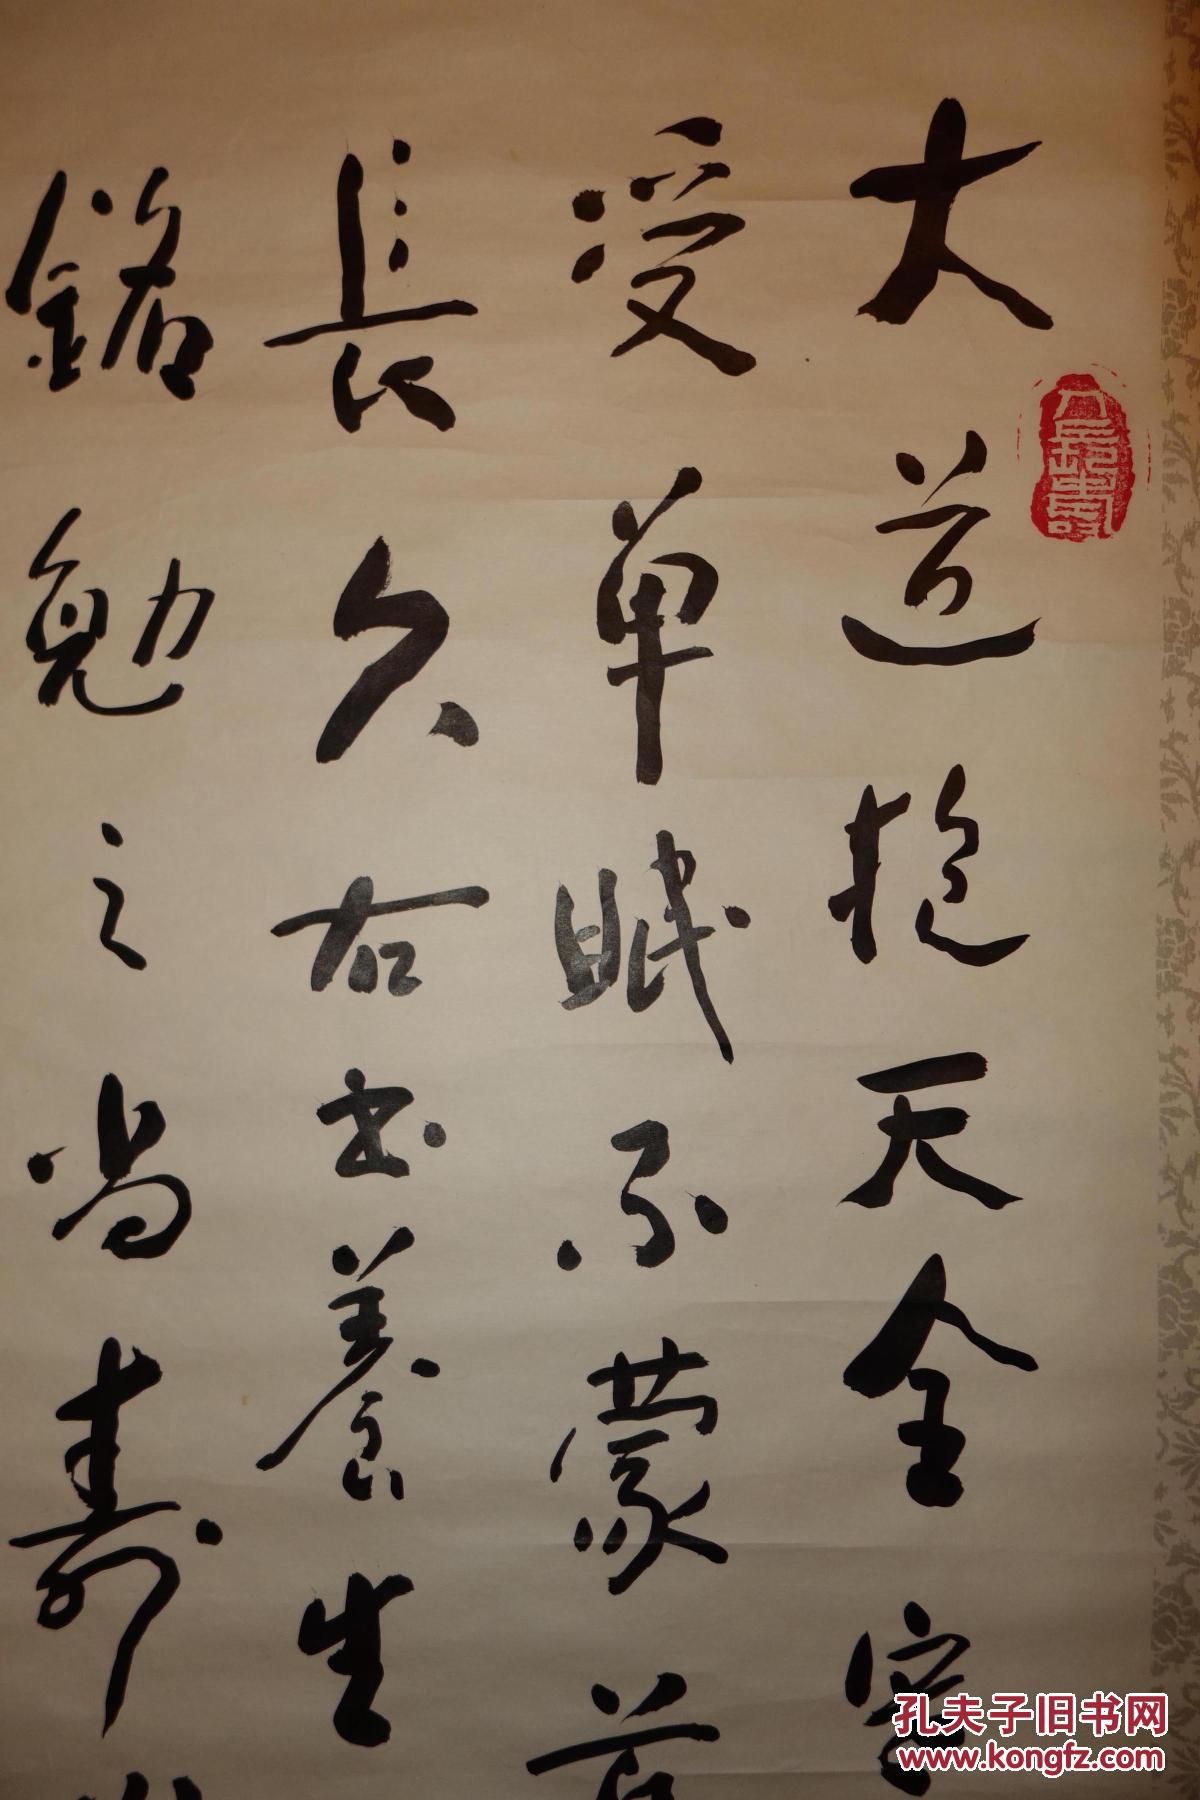 大道抱天全
受卑賤不蒙
長久右書養生
銘勉之尚壽
孔夫子旧书网
www.kongfz.com